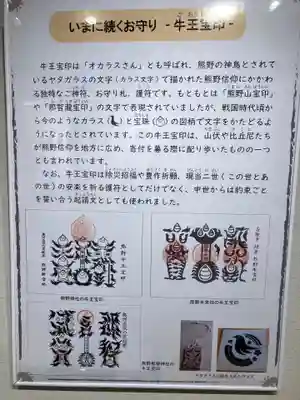 いまに続くお守り - 牛王宝印 -
牛王宝印は「オカラスさん」とも呼ばれ、熊野の神鳥とされて
いるヤタガラスの文字(カラス文字)で描かれた熊野信仰にかかわ
る独特なご神符、お守り札、護符です。もともとは「熊野山宝印」
や「那智瀧宝印」の文字で表現されていましたが、戦国時代頃か
ら今のようなカラス( )と宝珠( )の図柄で文字をかたどるよ
うになったとされています。この牛王宝印は、山伏や比丘尼たち
が熊野信仰を地方に広め、寄付を募る際に配り歩いたものの一つ
とも言われています。
なお、牛王宝印は除災招福や豊作祈願、現当二世(この世とあ
の世)の安楽を祈る護符としてだけでなく、中世からは約束ごと
を誓い合う起請文としても使われました。